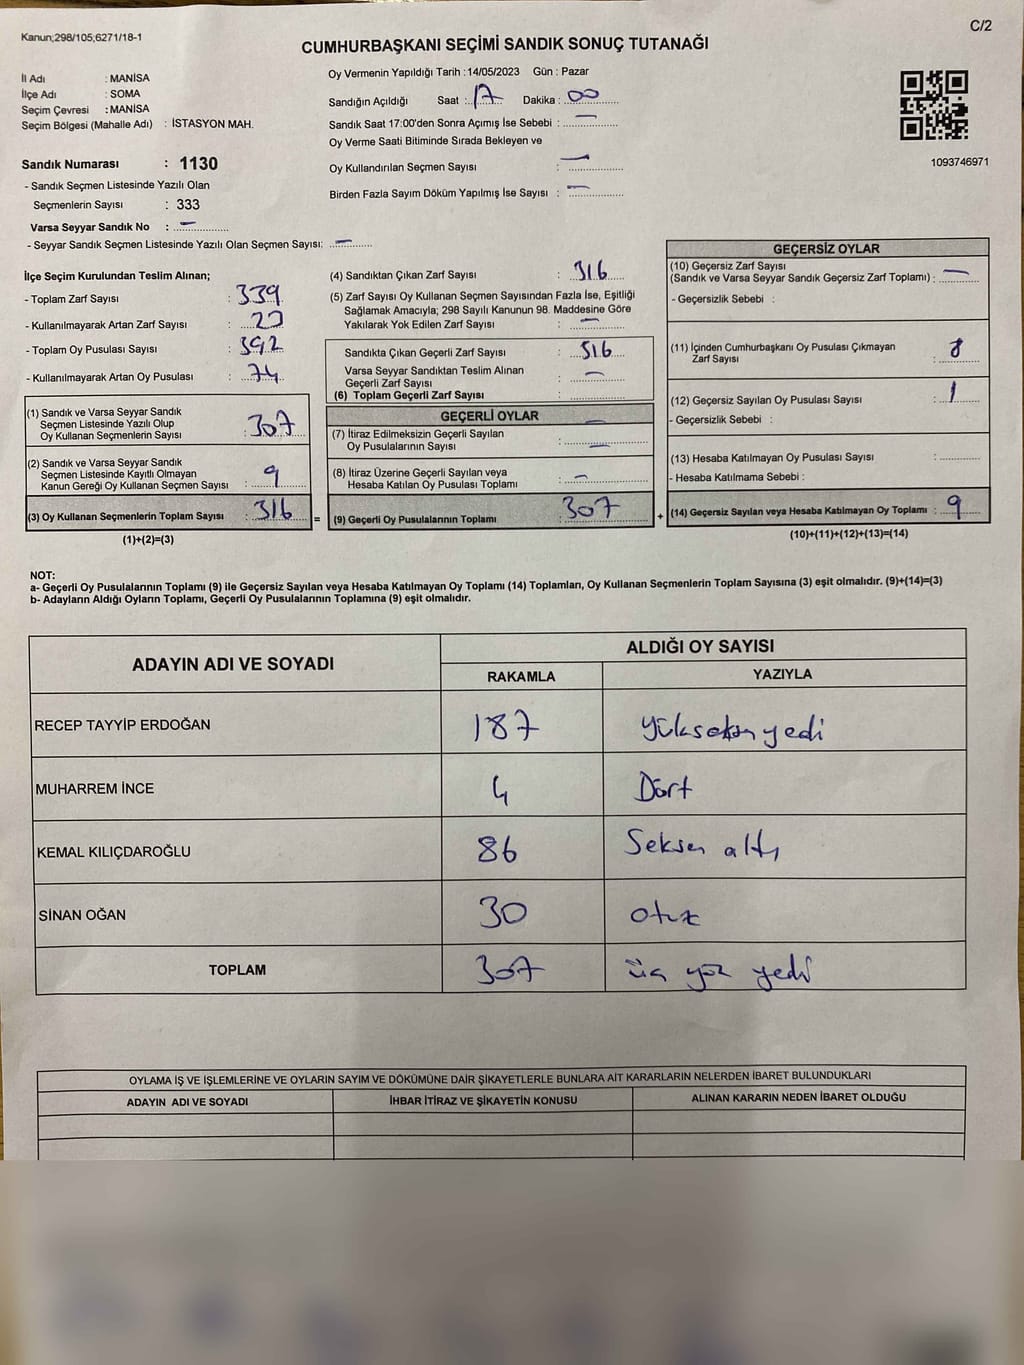 Kanun;298/105;6271/18-1
C/2
CUMHURBAŞKANI SEÇİMİ SANDIK SONUÇ TUTANAĞI
İl Adı : MANİSA
İlçe Adı : SOMA
Seçim Çevresi : MANİSA
Seçim Bölgesi (Mahalle Adı) : İSTASYON MAH.
Sandık Numarası : 1130
- Sandık Seçmen Listesinde Yazılı Olan
Seçmenlerin Sayısı : 333
Varsa Seyyar Sandık No : —
- Seyyar Sandık Seçmen Listesinde Yazılı Olan Seçmen Sayısı: —
Oy Vermenin Yapıldığı Tarih :14/05/2023 Gün : Pazar
Sandığın Açıldığı Saat : 17 Dakika : 00
Sandık Saat 17:00'den Sonra Açımış İse Sebebi : —
Oy Verme Saati Bitiminde Sırada Bekleyen ve
Oy Kullandırılan Seçmen Sayısı : —
Birden Fazla Sayım Döküm Yapılmış İse Sayısı : —
1093746971
İlçe Seçim Kurulundan Teslim Alınan;
- Toplam Zarf Sayısı : 339
- Kullanılmayarak Artan Zarf Sayısı :
- Toplam Oy Pusulası Sayısı : 392
- Kullanılmayarak Artan Oy Pusulası : 74
(1) Sandık ve Varsa Seyyar Sandık
Seçmen Listesinde Yazılı Olup
Oy Kullanan Seçmenlerin Sayısı : 307
(2) Sandık ve Varsa Seyyar Sandık
Seçmen Listesinde Kayıtlı Olmayan
Kanun Gereği Oy Kullanan Seçmen Sayısı : 9
(3) Oy Kullanan Seçmenlerin Toplam Sayısı : 316 =
(1)+(2)=(3)
(4) Sandıktan Çıkan Zarf Sayısı : 316
(5) Zarf Sayısı Oy Kullanan Seçmen Sayısından Fazla İse, Eşitliği
Sağlamak Amacıyla; 298 Sayılı Kanunun 98. Maddesine Göre
Yakılarak Yok Edilen Zarf Sayısı : —
Sandıkta Çıkan Geçerli Zarf Sayısı : 316
Varsa Seyyar Sandıktan Teslim Alınan
Geçerli Zarf Sayısı : —
(6) Toplam Geçerli Zarf Sayısı :
GEÇERLİ OYLAR
(7) İtiraz Edilmeksizin Geçerli Sayılan
Oy Pusulalarının Sayısı : —
(8) İtiraz Üzerine Geçerli Sayılan veya
Hesaba Katılan Oy Pusulası Toplamı : —
(9) Geçerli Oy Pusulalarının Toplamı : 307 +
GEÇERSİZ OYLAR
(10) Geçersiz Zarf Sayısı
(Sandık ve Varsa Seyyar Sandık Geçersiz Zarf Toplamı) : —
- Geçersizlik Sebebi :
(11) İçinden Cumhurbaşkanı Oy Pusulası Çıkmayan
Zarf Sayısı : 8
(12) Geçersiz Sayılan Oy Pusulası Sayısı : 1
- Geçersizlik Sebebi :
(13) Hesaba Katılmayan Oy Pusulası Sayısı :
- Hesaba Katılmama Sebebi :
(14) Geçersiz Sayılan veya Hesaba Katılmayan Oy Toplamı : 9
(10)+(11)+(12)+(13)=(14)
NOT:
a- Geçerli Oy Pusulalarının Toplamı (9) ile Geçersiz Sayılan veya Hesaba Katılmayan Oy Toplamı (14) Toplamları, Oy Kullanan Seçmenlerin Toplam Sayısına (3) eşit olmalıdır. (9)+(14)=(3)
b- Adayların Aldığı Oyların Toplamı, Geçerli Oy Pusulalarının Toplamına (9) eşit olmalıdır.
ADAYIN ADI VE SOYADI ALDIĞI OY SAYISI
RAKAMLA YAZIYLA
RECEP TAYYİP ERDOĞAN 187 yükseksen yedi
MUHARREM İNCE 4 Dört
KEMAL KILIÇDAROĞLU 86 Seksen altı
SİNAN OĞAN 30 otuz
TOPLAM 307 üç yüz yedi
OYLAMA İŞ VE İŞLEMLERİNE VE OYLARIN SAYIM VE DÖKÜMÜNE DAİR ŞİKAYETLERLE BUNLARA AİT KARARLARIN NELERDEN İBARET BULUNDUKLARI
ADAYIN ADI VE SOYADI İHBAR İTİRAZ VE ŞİKAYETİN KONUSU ALINAN KARARIN NEDEN İBARET OLDUĞU